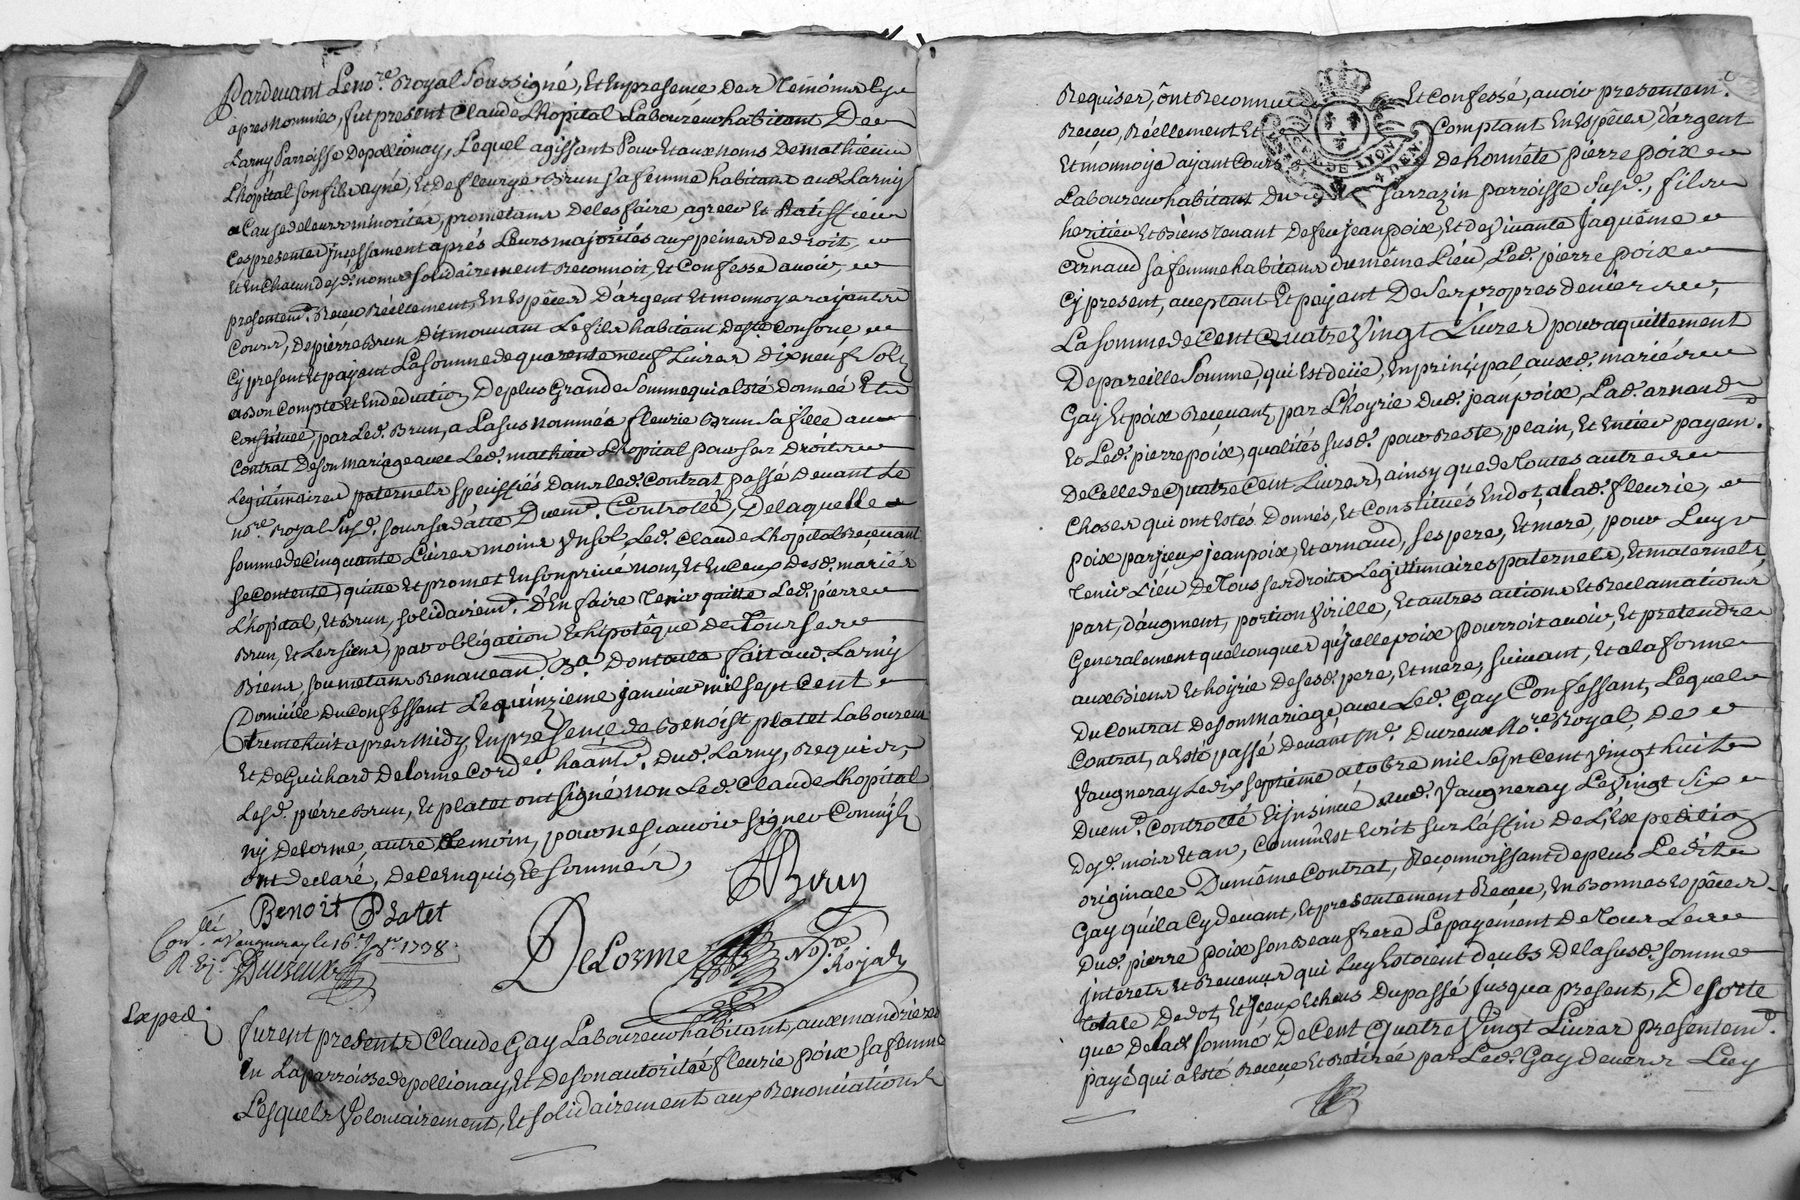 Pardevant Le no.re Royal Soussigné, Et En presence des Temoins Cy
apres nommés, fut present Claude Lhopital Laboureur habitant De
Larny Parroisse De pollionay, Lequel agissant Pour Et aux noms De mathieu
Lhopital son fils ayné, Et de fleurye Brun sa femme habitans aud. Larny
a Cause de leurs minorités, prometans de les faire agreer Et Ratiffier
Ces presentes Incessament aprés Leurs majorités aux peines de droit,
Et En Chacun desd. noms solidairement Reconnoit, Et Confesse avoir
presentem.t Reçeu Réellement, En Espéces D'argent Et monnoye ayants
Cours, De pierre Brun Dit mouuant Le fils habitant
Cy present Et payant La somme de quarente neuf Livres Dix neuf Sols
a bon Compte Et En deduction De plus Grande Somme qui a Esté donneé Et
Constituée, par Led. Brun, a La sus nommée fleurie Brun sa fille au
Contrat De son Mariage avec Led. mathieu Lhopital pour ses Droits
Legittimaires paternels speciffiés Dans led. Contrat passé Devant Le
no.re Royal susd. sous sa datte Duem.t Controllé, De laquelle
somme de Cinquante Livres moins Un sol Led. Claude Lhopital Recevant
se contente, quitte Et promet En son privé nom, Et En Ceux Desd. mariés
L'hopital, Et Brun, solidairem.t D'En faire Tenir quitte Led. pierre
Brun, Et Les siens, par obligation Et hipotéque De Tous ses
Biens, soumetans Renonceant. Et.a Dont acte fait aud. Larny
Domicile Du Confessant Le quinzieme janvier mil sept Cent
trente huit apres Midy, En presence de Benoist platet Laboureur
Et De Guichard Delorme Cord.er habants. Dud. Larny, Requis,
Lesd. pierre Brun, Et platet ont signé non Led. Claude Lhopital
ny Delorme, autre Temoin, pour ne scavoir signer Comm'ils
ont declaré, De Ce Enquis, Et sommés,
Brun
Benoit Platet
Con.llé a Vaugneray le 16.e jer 1738.
R. Duvreux
DeLorme No.re Royal
Exped.
furent presents Claude Gay Laboureur habitant, aux mandrieres
En La parroisse de pollionay, Et De son autorité fleurie poix sa femme
Lesquels Volontairement, Et solidairement aux Renonciations
Requises, ont Reconnu Et Confessé, avoir presentem.t
Receu, Réellement Et Comptant En Espéces, d'argent
Et monnoye ayant Cours De honnéte pierre poix
Laboureur habitant Du Sarrazin parroisse Susd., fils
heritier Et Biens tenant De feu jean poix, Et de Vivante Jaquéme
Arnaud sa femme habitans du méme Lieu, Led. pierre poix
Cy present, acceptant Et payant De ses propres deniers
La somme de Cent Quatre Vingt Livres, pour aquittement
De pareille Somme, qui Est deüe, En prinçipal, auxd. mariés
Gay Et poix Recevant, par L'hoyrie Dud. jean poix, Lad. arnaud
Et Led. pierre poix, qualités susd. pour Reste, plain, Et Entier payem.t
De Celle de Quatre Cent Livres, ainsy que de Toutes autres
Choses qui ont Estés Donnés, Et Constitués En dot, a lad. fleurie,
poix par jceux jean poix, Et arnaud, ses pere, Et mere, pour Luy
Tenir Lieu De Tous ses droits Legittimaires paternels, Et maternels
part, d'augment, portion Virille, Et autres actions Et Reclamations
Generalement quelconques qu'jcelle poix pourroit avoir, Et pretendre
aux Biens Et hoyrie De sesd. pere, Et mere, suivant, Et a la forme
Du Contrat De son Mariage, avec Led. Gay Confessant, Lequel
Contrat, a Esté passé Devant M.e Duvreux No.re Royal, De
Vaugneray Le dix septieme octobre mil sept Cent Vingt huit
Duem.t Controllé Et jnsinué aud. Vaugneray Le Vingt Six
Desd. mois Et an, Comm'Est Ecrit sur La ffin De L'Expedition
originale Du méme Contrat, Reconnoissant de plus Ledit
Gay qu'il a Cy devant, Et presentement Receu, En Bonnes Espéces
Dud. pierre poix son Beau frere Le payement De Tous Les
jnterets Et Revenus qui Luy Estoient deubs De la susd. somme
totale De dot, Et jceux Echeus Du passé Jusqu'a present, De sorte
que De lad. somme De Cent Quatre Vingt Livres presentem.t
payé qui a Esté Receue Et Retirée par Led. Gay Devers Luy